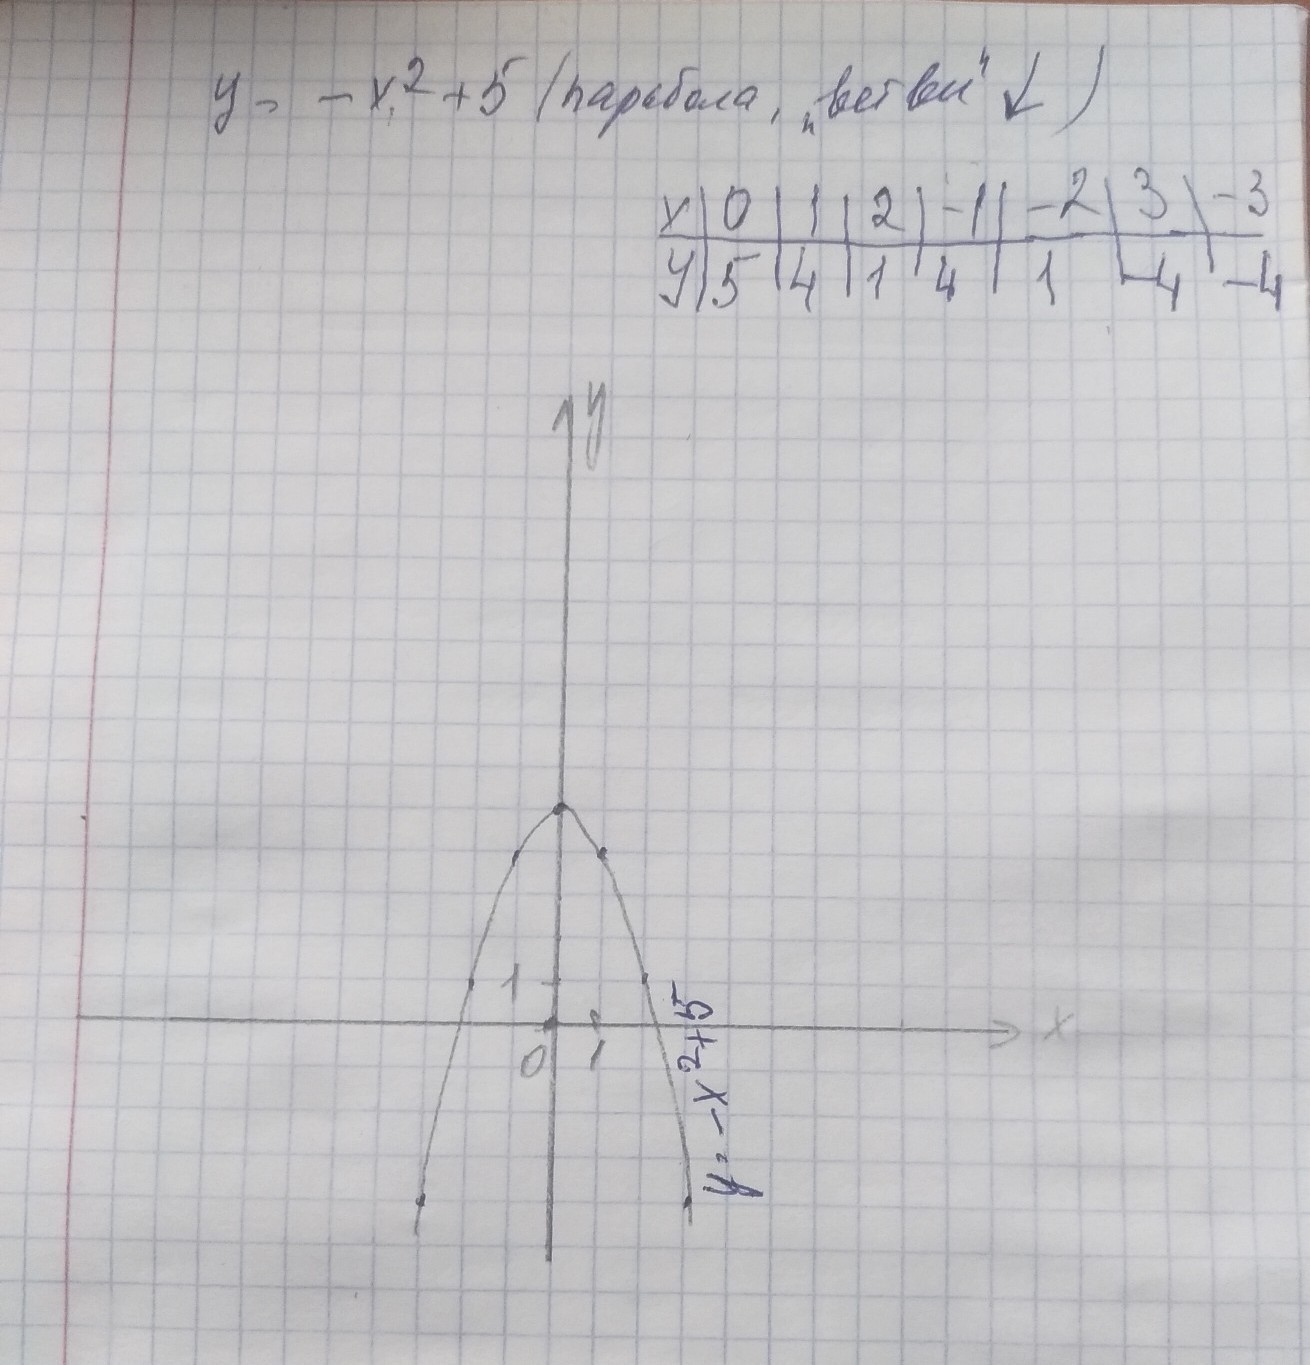 y = -x²+5 (парабола, „ветви" ↓)
x | 0 | 1 | 2 | -1 | -2 | 3 | -3
y | 5 | 4 | 1 | 4 | 1 | -4 | -4
y
1
0 1
x
y = -x²+5